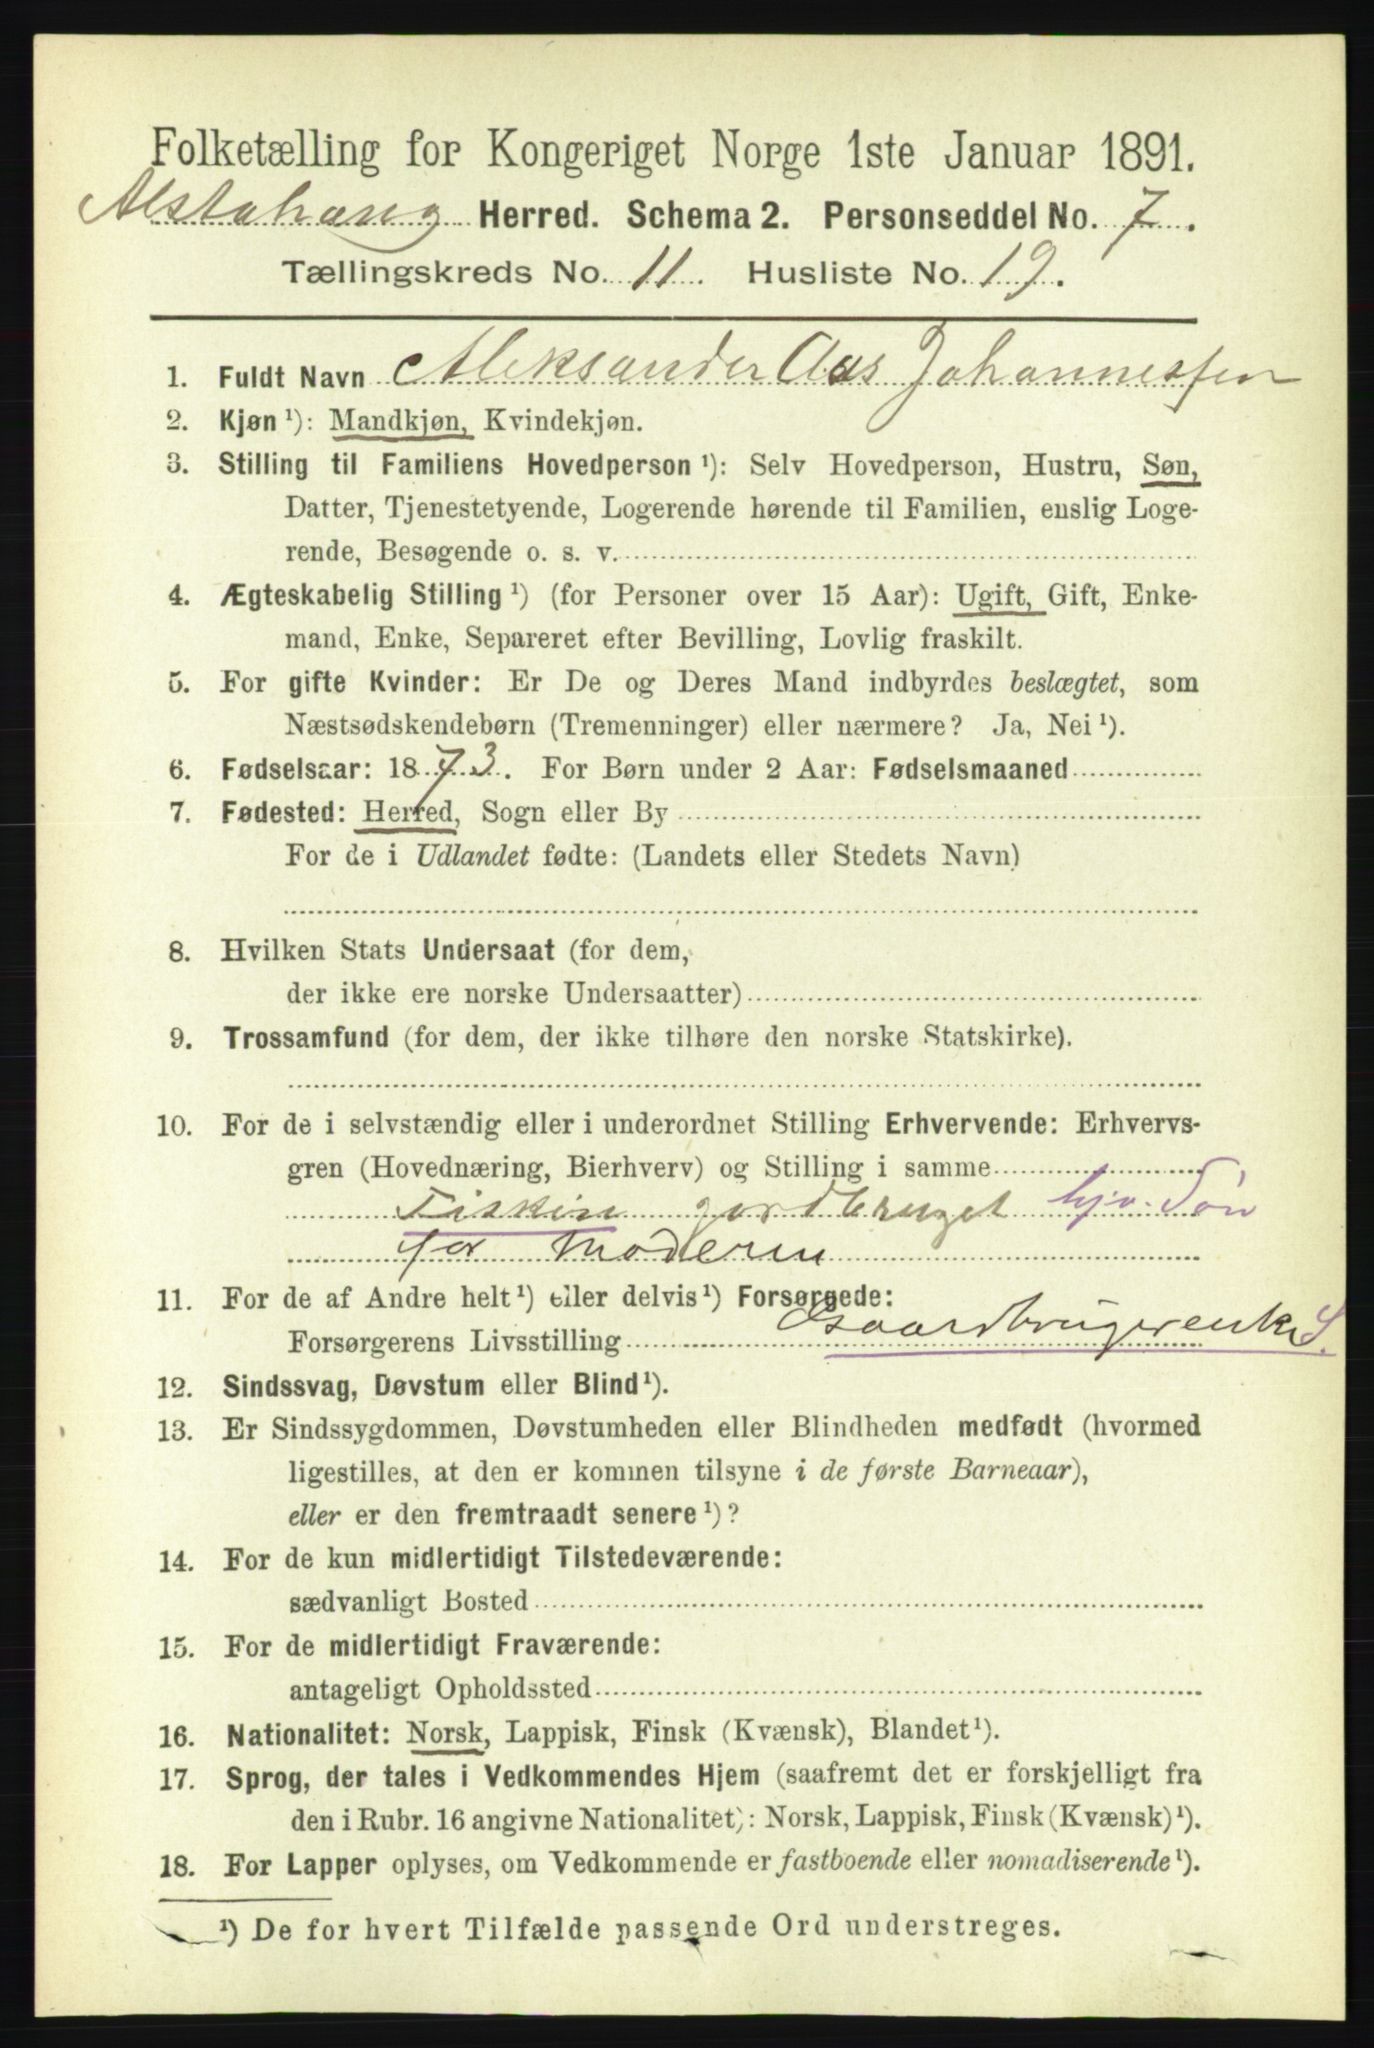 Folketælling for Kongeriget Norge 1ste Januar 1891.
Alstahaug Herred. Schema 2. Personseddel No. 7.
Tællingskreds No. 11. Husliste No. 19.
1. Fuldt Navn Aleksander Aas Johannessen
2. Kjøn ¹): Mandkjøn, Kvindekjøn.
3. Stilling til Familiens Hovedperson ¹): Selv Hovedperson, Hustru, Søn,
Datter, Tjenestetyende, Logerende hørende til Familien, enslig Loge-
rende, Besøgende o. s. v.
4. Ægteskabelig Stilling ¹) (for Personer over 15 Aar): Ugift, Gift, Enke-
mand, Enke, Separeret efter Bevilling, Lovlig fraskilt.
5. For gifte Kvinder: Er De og Deres Mand indbyrdes beslægtet, som
Næstsødskendebørn (Tremenninger) eller nærmere? Ja, Nei ¹).
6. Fødselsaar: 1873. For Børn under 2 Aar: Fødselsmaaned
7. Fødested: Herred, Sogn eller By
For de i Udlandet fødte: (Landets eller Stedets Navn)
8. Hvilken Stats Undersaat (for dem,
der ikke ere norske Undersaatter)
9. Trossamfund (for dem, der ikke tilhøre den norske Statskirke).
10. For de i selvstændig eller i underordnet Stilling Erhvervende: Erhvervs-
gren (Hovednæring, Bierhverv) og Stilling i samme
Fisker jordbruget hjv. Søn
for Moderen
11. For de af Andre helt ¹) eller delvis ¹) Forsørgede:
Forsørgerens Livsstilling Gaardbrugerenke S.
12. Sindssvag, Døvstum eller Blind ¹).
13. Er Sindssygdommen, Døvstumheden eller Blindheden medfødt (hvormed
ligestilles, at den er kommen tilsyne i de første Barneaar),
eller er den fremtraadt senere ¹)?
14. For de kun midlertidigt Tilstedeværende:
sædvanligt Bosted
15. For de midlertidigt Fraværende:
antageligt Opholdssted
16. Nationalitet: Norsk, Lappisk, Finsk (Kvænsk), Blandet ¹).
17. Sprog, der tales i Vedkommendes Hjem (saafremt det er forskjelligt fra
den i Rubr. 16 angivne Nationalitet): Norsk, Lappisk, Finsk (Kvænsk) ¹).
18. For Lapper oplyses, om Vedkommende er fastboende eller nomadiserende ¹).
¹) De for hvert Tilfælde passende Ord understreges.